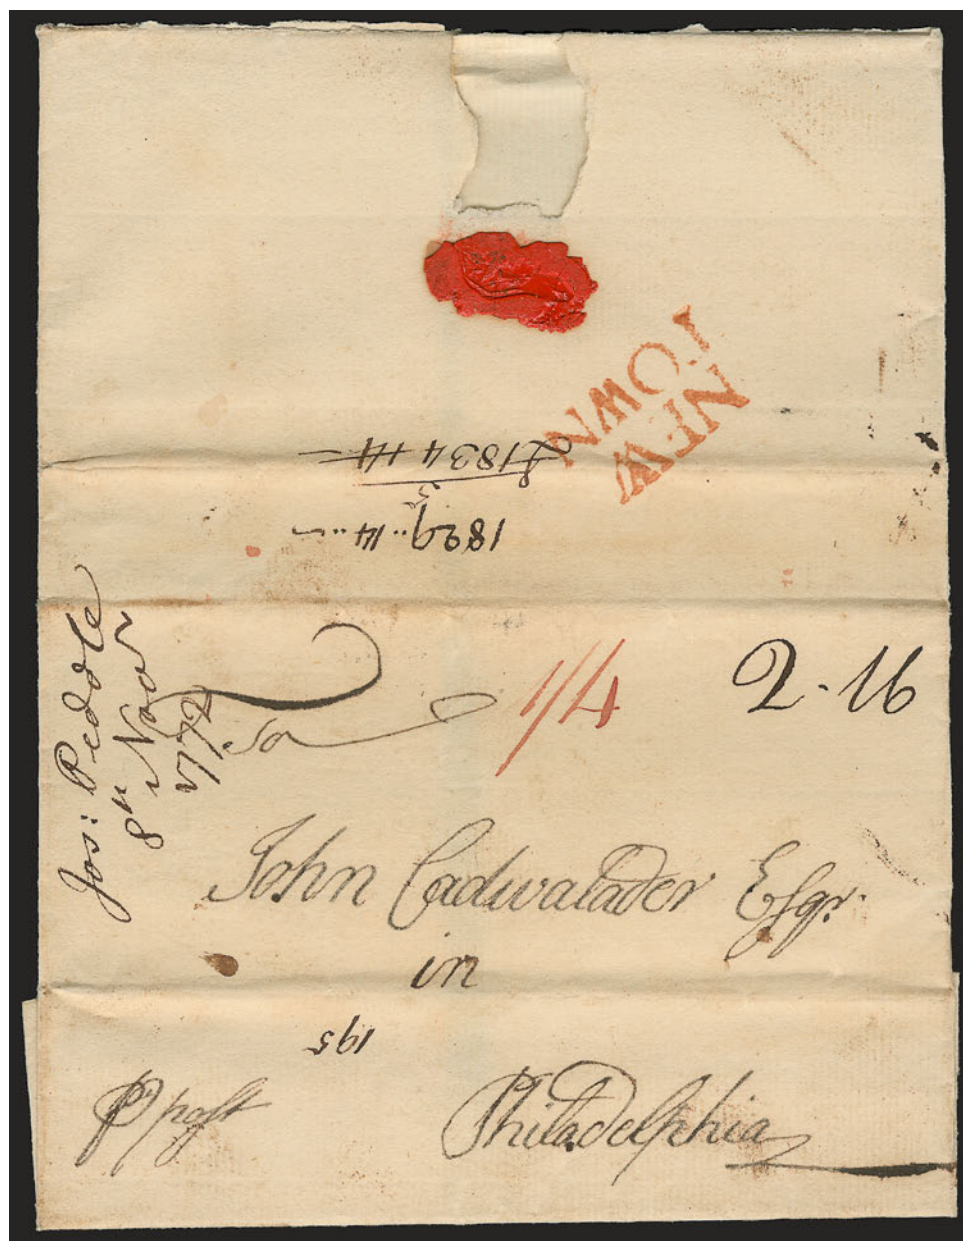 NEW
TOWN
£1834 14
5
1829..14..
Jos: Peddle
8th Novr
1772
1/4
2.16
John Cadwalader Esqr.
in
195
P post
Philadelphia